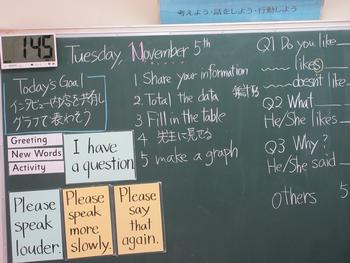 考えよう・話をしよう・行動しよう
145
Tuesday, November 5th
Today's Goal
インタビュー内容を共有し
グラフで表わそう
Greeting
New Words
Activity
I have
a question.
Please
speak
louder.
Please
speak
more
slowly.
Please
say
that
again.
1 Share your information
2. Total the data
3 Fill in the table
4 先生に見せる
5 make a graph
Q1 Do you like
likes
doesn't like
Q2 What
He/She likes
Q3 Why?
He/She said
Others 5